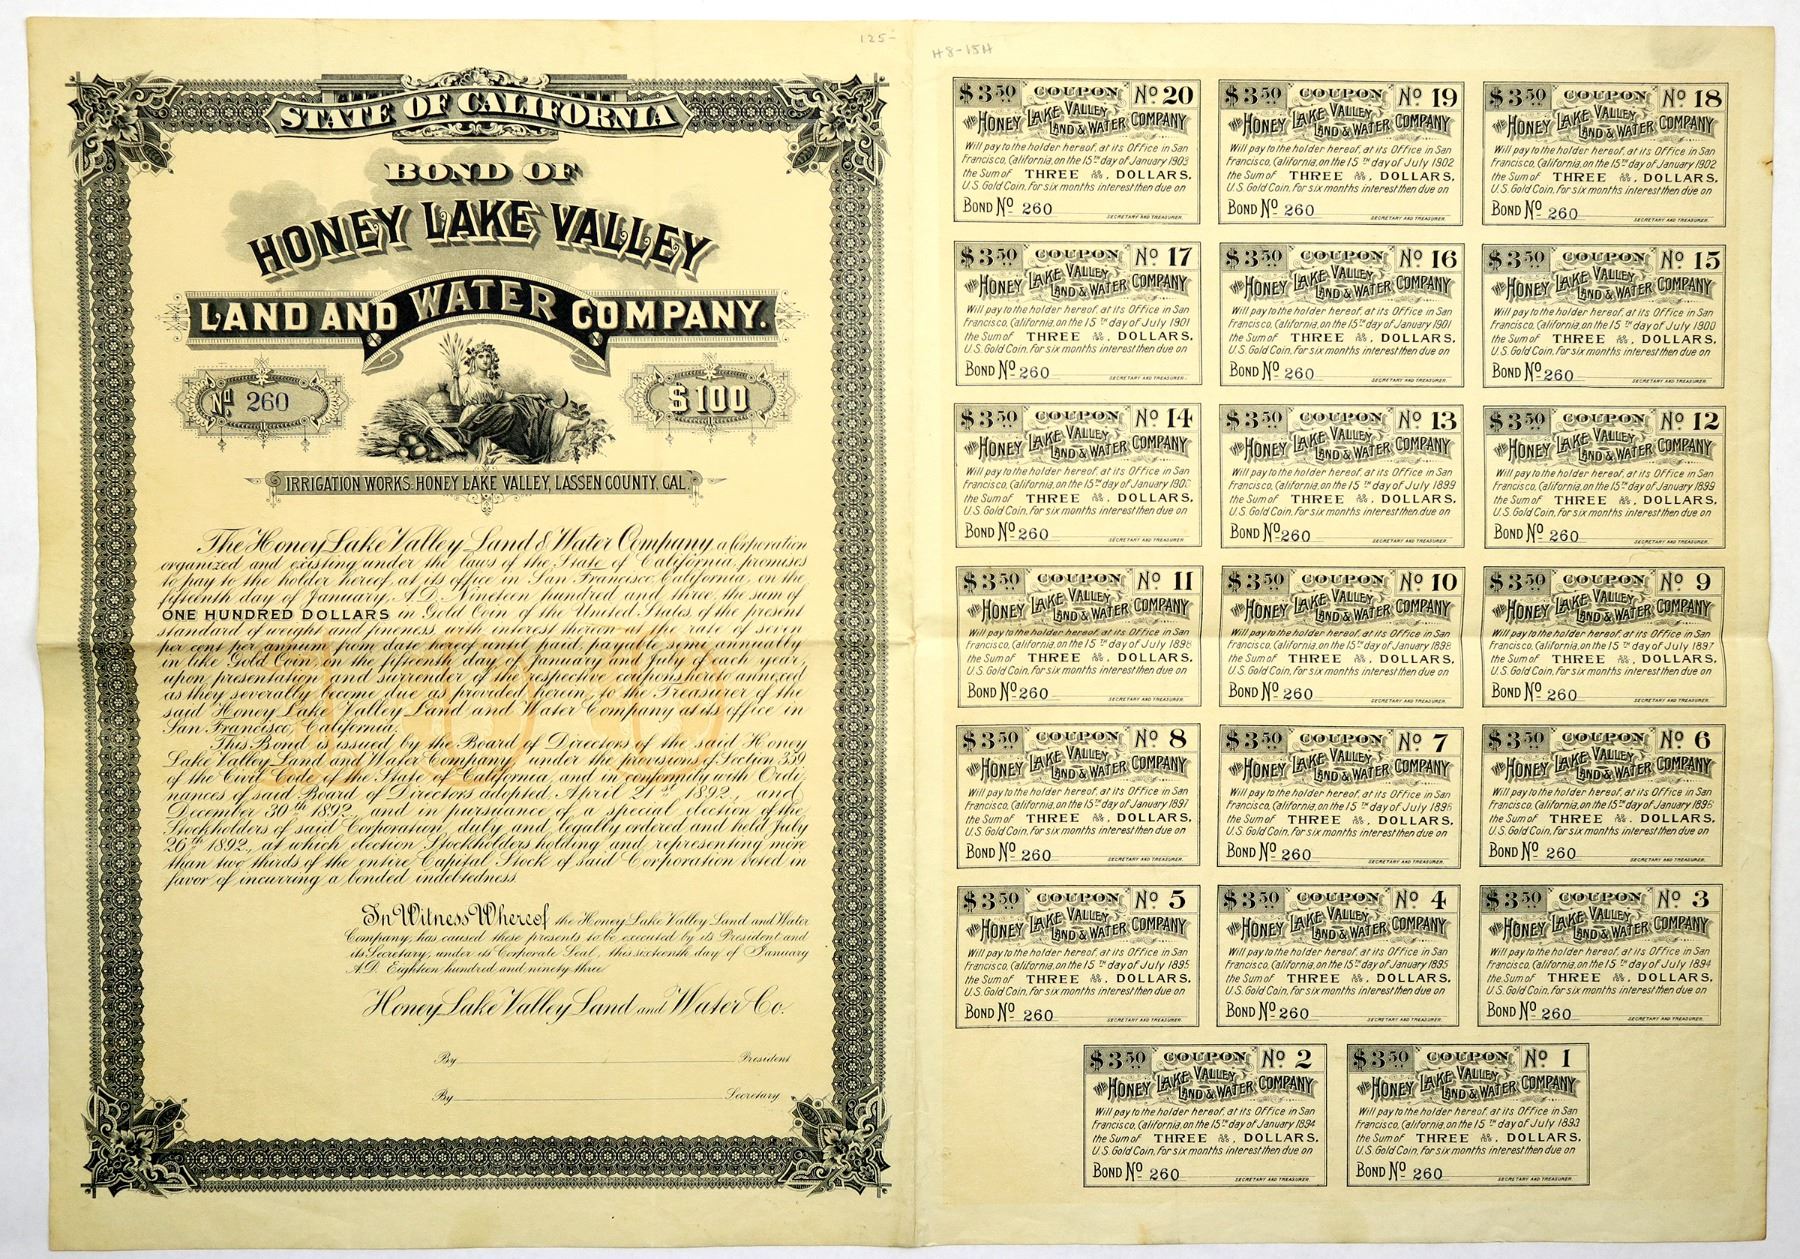 125-
H8-15H
STATE OF CALIFORNIA
BOND OF
HONEY LAKE VALLEY
LAND AND WATER COMPANY.
No. 260
$100
IRRIGATION WORKS-HONEY LAKE VALLEY, LASSEN COUNTY, CAL.
The Honey Lake Valley Land & Water Company, a Corporation
organized and existing under the laws of the State of California, promises
to pay to the holder hereof, at its office in San Francisco, California, on the
fifteenth day of January, A.D. Nineteen hundred and three, the sum of
ONE HUNDRED DOLLARS in Gold Coin of the United States, of the present
standard of weight and fineness, with interest thereon at the rate of seven
per cent per annum from date hereof until paid, payable semi annually
in like Gold Coin on the fifteenth day of January and July of each year,
upon presentation and surrender of the respective coupons hereto annexed
as they severally become due as provided herein, to the Treasurer of the
said Honey Lake Valley Land and Water Company at its office in
San Francisco, California.
This Bond is issued by the Board of Directors of the said Honey
Lake Valley Land and Water Company, under the provisions of Section 359
of the Civil Code of the State of California, and in conformity with Ordi-
nances of said Board of Directors adopted, April 21st 1892, and
December 30th 1892, and in pursuance of a special election of the
Stockholders of said Corporation, duly and legally ordered and held July
26th 1892, at which election Stockholders holding and representing more
than two thirds of the entire Capital Stock of said Corporation voted in
favor of incurring a bonded indebtedness.
In Witness Whereof the Honey Lake Valley Land and Water
Company, has caused these presents to be executed by its President and
its Secretary, under its Corporate Seal, this sixteenth day of January
A.D. Eighteen hundred and ninety three
Honey Lake Valley Land and Water Co.
By President
By Secretary
$3.50 COUPON No 20
THE HONEY LAKE VALLEY LAND & WATER COMPANY
Will pay to the holder hereof, at its Office in San
Francisco, California, on the 15TH day of January 1903
the Sum of THREE 50/100, DOLLARS,
U.S. Gold Coin, for six months interest then due on
BOND No 260
SECRETARY AND TREASURER.
$3.50 COUPON No 19
THE HONEY LAKE VALLEY LAND & WATER COMPANY
Will pay to the holder hereof, at its Office in San
Francisco, California, on the 15TH day of July 1902
the Sum of THREE 50/100, DOLLARS,
U.S. Gold Coin, for six months interest then due on
BOND No 260
SECRETARY AND TREASURER.
$3.50 COUPON No 18
THE HONEY LAKE VALLEY LAND & WATER COMPANY
Will pay to the holder hereof, at its Office in San
Francisco, California, on the 15TH day of January 1902
the Sum of THREE 50/100, DOLLARS,
U.S. Gold Coin, for six months interest then due on
BOND No 260
SECRETARY AND TREASURER.
$3.50 COUPON No 17
THE HONEY LAKE VALLEY LAND & WATER COMPANY
Will pay to the holder hereof, at its Office in San
Francisco, California, on the 15TH day of July 1901
the Sum of THREE 50/100, DOLLARS,
U.S. Gold Coin, for six months interest then due on
BOND No 260
SECRETARY AND TREASURER.
$3.50 COUPON No 16
THE HONEY LAKE VALLEY LAND & WATER COMPANY
Will pay to the holder hereof, at its Office in San
Francisco, California, on the 15TH day of January 1901
the Sum of THREE 50/100, DOLLARS,
U.S. Gold Coin, for six months interest then due on
BOND No 260
SECRETARY AND TREASURER.
$3.50 COUPON No 15
THE HONEY LAKE VALLEY LAND & WATER COMPANY
Will pay to the holder hereof, at its Office in San
Francisco, California, on the 15TH day of July 1900
the Sum of THREE 50/100, DOLLARS,
U.S. Gold Coin, for six months interest then due on
BOND No 260
SECRETARY AND TREASURER.
$3.50 COUPON No 14
THE HONEY LAKE VALLEY LAND & WATER COMPANY
Will pay to the holder hereof, at its Office in San
Francisco, California, on the 15TH day of January 1900
the Sum of THREE 50/100, DOLLARS,
U.S. Gold Coin, for six months interest then due on
BOND No 260
SECRETARY AND TREASURER.
$3.50 COUPON No 13
THE HONEY LAKE VALLEY LAND & WATER COMPANY
Will pay to the holder hereof, at its Office in San
Francisco, California, on the 15TH day of July 1899
the Sum of THREE 50/100, DOLLARS,
U.S. Gold Coin, for six months interest then due on
BOND No 260
SECRETARY AND TREASURER.
$3.50 COUPON No 12
THE HONEY LAKE VALLEY LAND & WATER COMPANY
Will pay to the holder hereof, at its Office in San
Francisco, California, on the 15TH day of January 1899
the Sum of THREE 50/100, DOLLARS,
U.S. Gold Coin, for six months interest then due on
BOND No 260
SECRETARY AND TREASURER.
$3.50 COUPON No 11
THE HONEY LAKE VALLEY LAND & WATER COMPANY
Will pay to the holder hereof, at its Office in San
Francisco, California, on the 15TH day of July 1898
the Sum of THREE 50/100, DOLLARS,
U.S. Gold Coin, for six months interest then due on
BOND No 260
SECRETARY AND TREASURER.
$3.50 COUPON No 10
THE HONEY LAKE VALLEY LAND & WATER COMPANY
Will pay to the holder hereof, at its Office in San
Francisco, California, on the 15TH day of January 1898
the Sum of THREE 50/100, DOLLARS,
U.S. Gold Coin, for six months interest then due on
BOND No 260
SECRETARY AND TREASURER.
$3.50 COUPON No 9
THE HONEY LAKE VALLEY LAND & WATER COMPANY
Will pay to the holder hereof, at its Office in San
Francisco, California, on the 15TH day of July 1897
the Sum of THREE 50/100, DOLLARS,
U.S. Gold Coin, for six months interest then due on
BOND No 260
SECRETARY AND TREASURER.
$3.50 COUPON No 8
THE HONEY LAKE VALLEY LAND & WATER COMPANY
Will pay to the holder hereof, at its Office in San
Francisco, California, on the 15TH day of January 1897
the Sum of THREE 50/100, DOLLARS,
U.S. Gold Coin, for six months interest then due on
BOND No 260
SECRETARY AND TREASURER.
$3.50 COUPON No 7
THE HONEY LAKE VALLEY LAND & WATER COMPANY
Will pay to the holder hereof, at its Office in San
Francisco, California, on the 15TH day of July 1896
the Sum of THREE 50/100, DOLLARS,
U.S. Gold Coin, for six months interest then due on
BOND No 260
SECRETARY AND TREASURER.
$3.50 COUPON No 6
THE HONEY LAKE VALLEY LAND & WATER COMPANY
Will pay to the holder hereof, at its Office in San
Francisco, California, on the 15TH day of January 1896
the Sum of THREE 50/100, DOLLARS,
U.S. Gold Coin, for six months interest then due on
BOND No 260
SECRETARY AND TREASURER.
$3.50 COUPON No 5
THE HONEY LAKE VALLEY LAND & WATER COMPANY
Will pay to the holder hereof, at its Office in San
Francisco, California, on the 15TH day of July 1895
the Sum of THREE 50/100, DOLLARS,
U.S. Gold Coin, for six months interest then due on
BOND No 260
SECRETARY AND TREASURER.
$3.50 COUPON No 4
THE HONEY LAKE VALLEY LAND & WATER COMPANY
Will pay to the holder hereof, at its Office in San
Francisco, California, on the 15TH day of January 1895
the Sum of THREE 50/100, DOLLARS,
U.S. Gold Coin, for six months interest then due on
BOND No 260
SECRETARY AND TREASURER.
$3.50 COUPON No 3
THE HONEY LAKE VALLEY LAND & WATER COMPANY
Will pay to the holder hereof, at its Office in San
Francisco, California, on the 15TH day of July 1894
the Sum of THREE 50/100, DOLLARS,
U.S. Gold Coin, for six months interest then due on
BOND No 260
SECRETARY AND TREASURER.
$3.50 COUPON No 2
THE HONEY LAKE VALLEY LAND & WATER COMPANY
Will pay to the holder hereof, at its Office in San
Francisco, California, on the 15TH day of January 1894
the Sum of THREE 50/100, DOLLARS,
U.S. Gold Coin, for six months interest then due on
BOND No 260
SECRETARY AND TREASURER.
$3.50 COUPON No 1
THE HONEY LAKE VALLEY LAND & WATER COMPANY
Will pay to the holder hereof, at its Office in San
Francisco, California, on the 15TH day of July 1893
the Sum of THREE 50/100, DOLLARS,
U.S. Gold Coin, for six months interest then due on
BOND No 260
SECRETARY AND TREASURER.